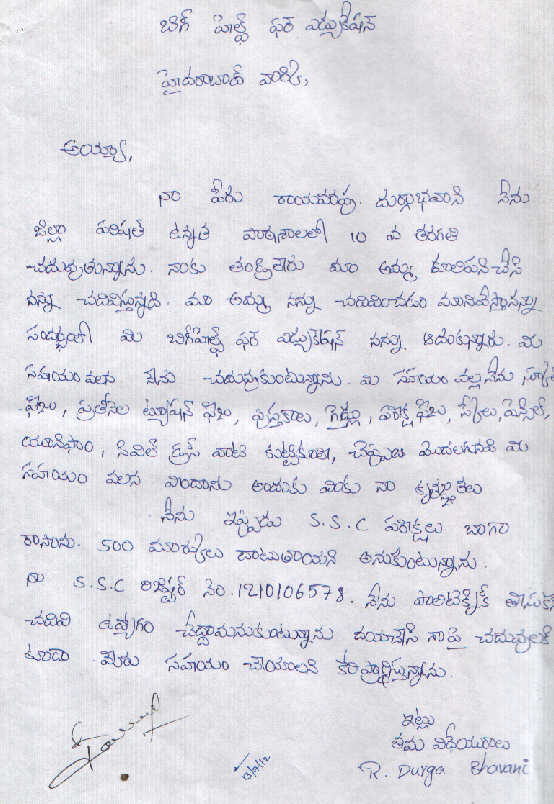 బిగ్ హెల్ప్ ఫర్ ఎడ్యుకేషన్
హైదరాబాద్ వారికి,
అయ్యా,
నా పేరు రాయపూడి దుర్గాభవాని నేను
జిల్లా పరిషత్ ఉన్నత పాఠశాలలో 10 వ తరగతి
చదువుతున్నాను. నాకు తండ్రిలేరు మా అమ్మ కూలిపనిచేసి
నన్ను చదివిస్తున్నది. మా అమ్మ నన్ను చదివించడం మానివేస్తానన్న
సందర్భంలో మి బిగ్‌హెల్ప్ ఫర్ ఎడ్యుకేషన్ నన్ను ఆదుకున్నారు. మి
సహయం వలన నేను చదువుకుంటున్నాను. మి సహయం వల్ల నేను స్కూల్
ఫీజు, ప్రతినెల ట్యూషన్ ఫీజు, పుస్తకాలు, గైడ్లు, పరీక్ష ఫీజు, స్కేలు, పెన్సిల్,
యూనిఫాం, సివిల్ డ్రస్ వాటి కుట్టుకూలి, చెప్పులు మొదలగునవి మి
సహయం వలన పొందాను అందుకు మీకు నా కృతజ్ఞతలు
నేను ఇప్పుడు S.S.C పరీక్షలు బాగా
రాసాను. 500 మార్కులు దాటుతాయని అనుకుంటున్నాను.
నా S.S.C రిజిష్టర్ నెం. 1210106578. నేను పాలిటెక్నిక్ తీసుకో
చదివి ఉద్యోగం చేద్దామనుకుంటున్నాను దయచేసి నాపై చదువులకి
కూడా మీరు సహయం చేయాలని కోరిప్రార్థిస్తున్నాను.
ఇట్లు
తమ విదేయురాలు
R. Durga Bhavani